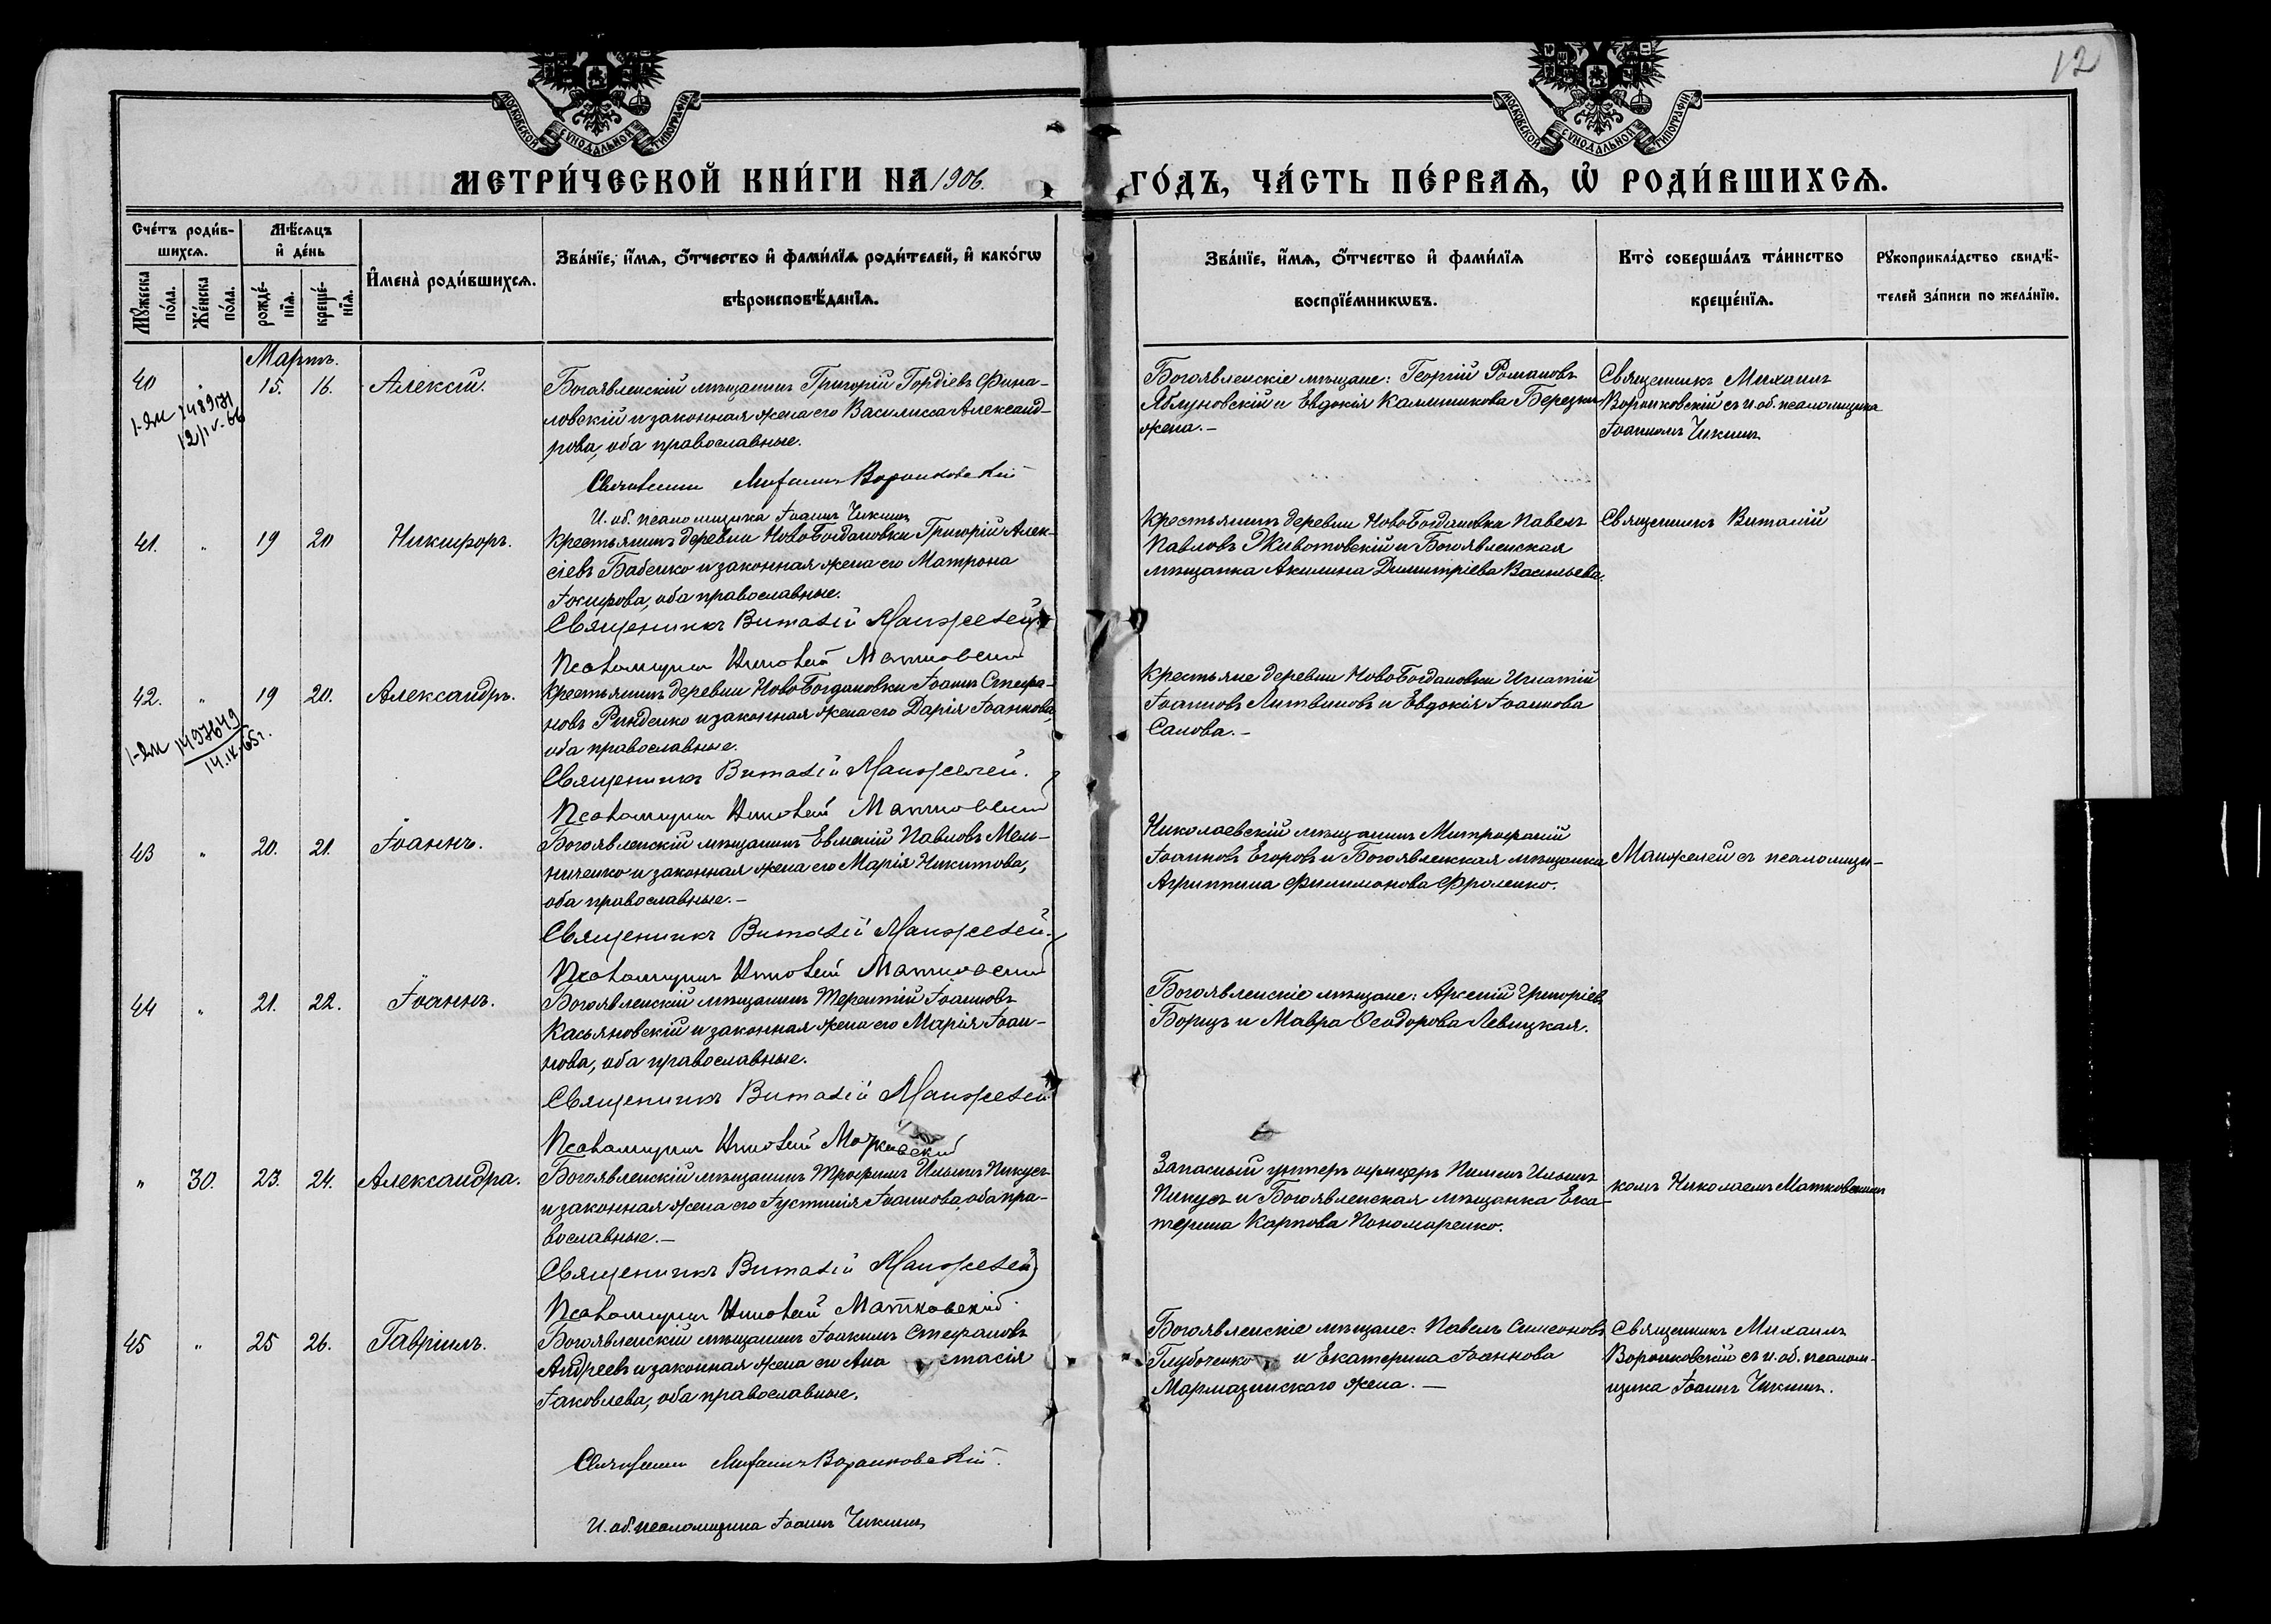 12
МОСКОВСКОЙ СУНОДАЛЬНОЙ ТИПОГРАФІИ
МОСКОВСКОЙ СУНОДАЛЬНОЙ ТИПОГРАФІИ
МЕТРИ́ЧЕСКОЙ КНИ́ГИ НА 1906.
ГО́ДЪ, ЧА́СТЬ ПЕ́РВАѦ, Ѡ҆ РОДИ́ВШИХСѦ.
Сче́тъ роди́в-
шихсѧ.
Мꙋ́жеска по́ла.
Же́нска по́ла.
Мѣ́сѧцъ
и҆ де́нь
рожде́-
нїѧ.
креще́-
нїѧ.
И҆мена̀ роди́вшихсѧ.
Зва́нїе, и҆́мѧ, ѻ҆́тчество и҆ фами́лїѧ роди́телей, и҆ како́гѡ
вѣроисповѣ́данїѧ.
Зва́нїе, и҆́мѧ, ѻ҆́тчество и҆ фами́лїѧ
воспрїе́мникѡвъ.
Кто̀ соверша́лъ та́инство
креще́нїѧ.
Рꙋкоприкла́дство свидѣ́-
телей за́писи по жела́нїю.
Мартъ.
40 " 15. 16. Алексій.
1-ЯМ 1489131
12/IV-66
Богоявленскій мѣщанинъ Григорій Гордіевъ Фина-
ловскій и законная жена его Василисса Александ-
рова, оба православные.
Священникъ Михаилъ Воронковскій
И. об. псаломщика Іоаннъ Чикинъ
Богоявленскіе мѣщане: Георгій Романовъ
Яблуновскій и Евдокія Калиникова Березки
жена.—
Священникъ Михаилъ
Воронковскій съ и. об. псаломщика
Іоанномъ Чикинъ
41. " 19 20 Никифоръ.
Крестьянинъ деревни НовоБогдановки Григорій Алек-
сіевъ Бабенко и законная жена его Матрона
оба православные.
Священникъ Виталій Манжелей
Псаломщикъ Николай Матковскій
Крестьянинъ деревни НовоБогдановки Павелъ
Павловъ Животовскій и Богоявленская
мѣщанка Акилина Димитріева Васильева.
Священникъ Виталій
42. " 19 20. Александръ.
1-ЯМ 1497649
14.IX.65г.
Крестьянинъ деревни НовоБогдановки Іоаннъ Стефа-
новъ Ринденко и законная жена его Дарія Іоаннова,
оба православные.
Священникъ Виталій Манжелей.
Псаломщикъ Николай Матковскій
Крестьяне деревни НовоБогдановки Игнатій
Іоанновъ Литвиновъ и Евдокія Іоаннова
Сапова.—
43 " 20. 21. Іоаннъ.
Богоявленскій мѣщанинъ Евменій Павловъ Мель-
ниченко и законная жена его Марія Никитова,
оба православные.—
Священникъ Виталій Манжелей.
Псаломщикъ Николай Матковскій
Николаевскій мѣщанинъ Митрофаній
Іоанновъ Егоровъ и Богоявленская мѣщанка
Агриппина Филимонова Фроленко.
Манжелей съ псаломщи-
44 " 21. 22. Іоаннъ.
Богоявленскій мѣщанинъ Терентій Іоанновъ
Касьяновскій и законная жена его Марія Іоан-
нова, оба православные.
Священникъ Виталій Манжелей
Псаломщикъ Николай Матковскій
Богоявленскіе мѣщане: Арсеній Григоріевъ
Борщъ и Мавра Ѳеодорова Левицкая.
" 30. 23. 24. Александра.
Богоявленскій мѣщанинъ Трофимъ Ильинъ Пикусъ
и законная жена его Іустинія Іоаннова, оба пра-
вославные.—
Священникъ Виталій Манжелей
Псаломщикъ Николай Матковскій.
Запасный унтеръ офицеръ Пименъ Ильинъ
Пикусъ и Богоявленская мѣщанка Ека-
терина Карпова Пономаренко.
комъ Николаемъ Матковскимъ
45 " 25 26. Гавріилъ.
Богоявленскій мѣщанинъ Іоакимъ Стефановъ
Андреевъ и законная жена его Ана стасія
Іаковлева, оба православные.
Священникъ Михаилъ Воронковскій.
И. об. псаломщика Іоаннъ Чикинъ
Богоявленскіе мѣщане: Павелъ Симеоновъ
Глубоченко и Екатерина Іоаннова
Мармазинскаго жена.—
Священникъ Михаилъ
Воронковскій съ и. об. псалом-
щика Іоаннъ Чикинъ.